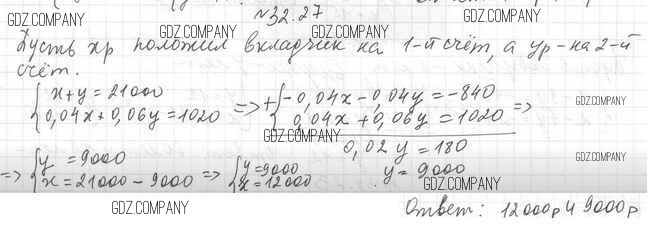 №32.27
GDZ.COMPANY GDZ.COMPANY GDZ.COMPANY
Пусть xр положил вкладчик на 1-й счёт, а yр-на 2-й
счёт.
{x+y=21000 =>+{-0,04x-0,04y=-840 =>
{0,04x+0,06y=1020 {0,04x+0,06y=1020
GDZ.COMPANY
GDZ.COMPANY
0,02y=180
=>{y=9000 =>{y=9000 y=9000
{x=21000-9000 {x=12000
GDZ.COMPANY
GDZ.COMPANY
GDZ.COMPANY
Ответ: 12000р и 9000р